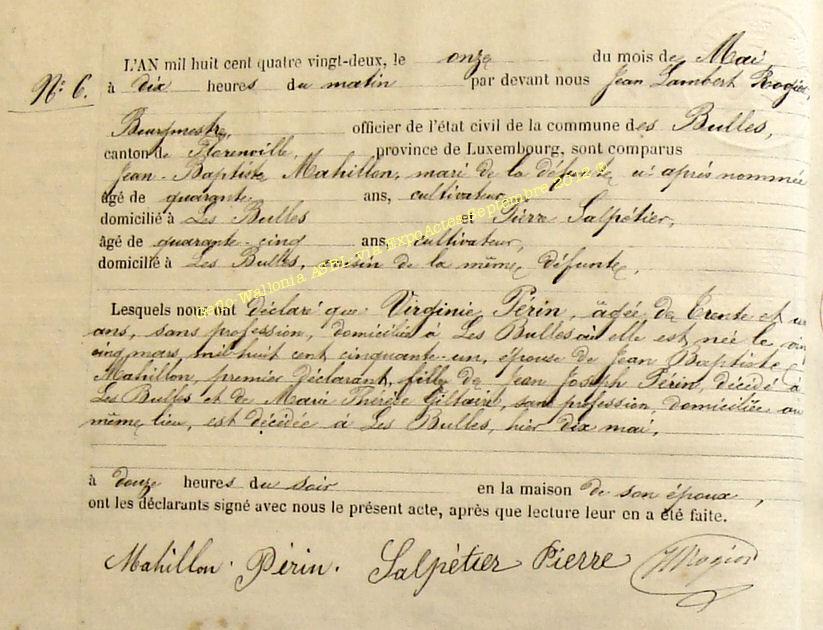 L'AN mil huit cent quatre vingt-deux, le onze du mois de Mai
N°: 6. à dix heures du matin par devant nous Jean Lambert Rogier,
Bourgmestre, officier de l'état civil de la commune des Bulles,
canton de Florenville, province de Luxembourg, sont comparus
Jean-Baptiste Mahillon, mari de la défunte ci après nommée
âgé de quarante ans, cultivateur,
domicilié à Les Bulles et Pierre Salpétier,
âgé de quarante-cinq ans, cultivateur,
domicilié à Les Bulles, cousin de la même défunte,
Lesquels nous ont déclaré que Virginie Périn, âgée de trente et un
ans, sans profession, domiciliée à Les Bulles où elle est née le vin
cinq mars, mil huit cent cinquante-un, épouse de Jean Baptiste
Mahillon, premier déclarant, fille de Jean Joseph Périn, décédé à
Les Bulles et de Marie Thérèse Giltaire, sans profession, domiciliée au
même lieu, est décédée à Les Bulles, hier dix mai,
à douze heures du soir en la maison de son époux,
ont les déclarants signé avec nous le présent acte, après que lecture leur en a été faite.
Mahillon. Périn. Salpétier Pierre JLRogier
Geno Wallonia ASBL via ExpoActes septembre 2012 ©